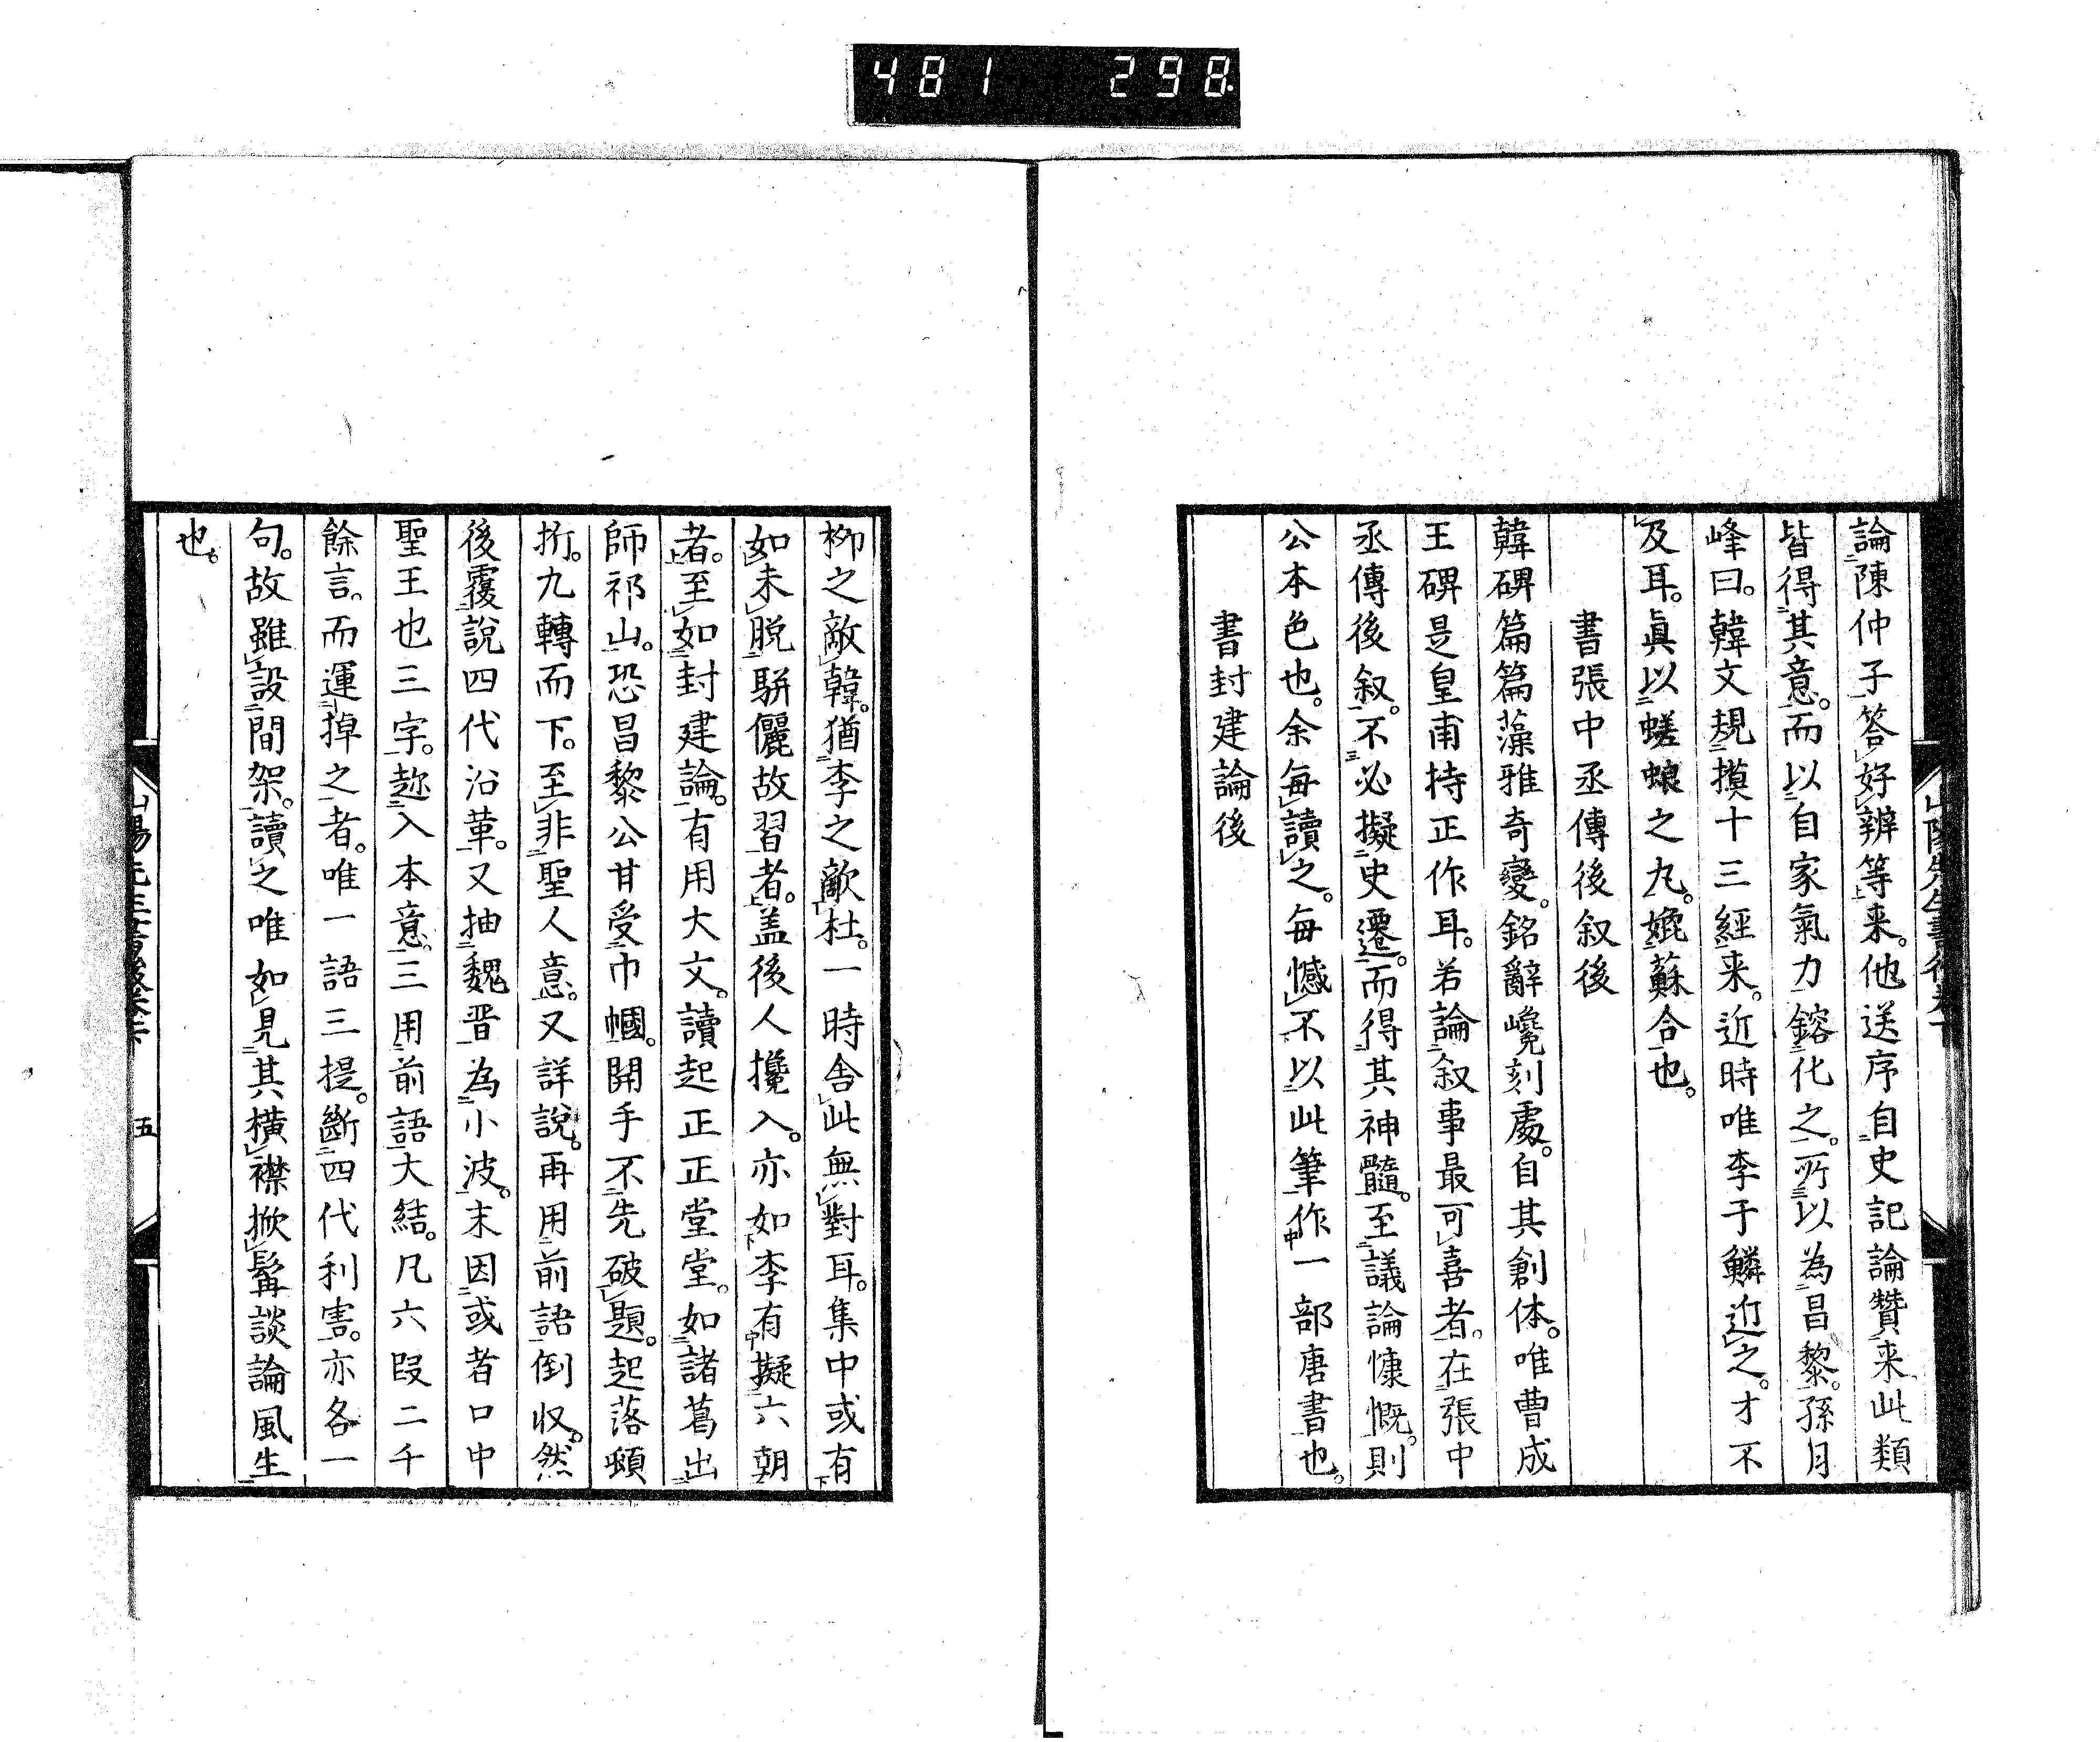 481 298
論陳仲子答好辨等来。他送序自史記論贊来此類
皆得其意。而以自家氣力鎔化之。所以為昌黎。孫月
峰曰。韓文規摸十三經来。近時唯李于鱗近之。才不
及耳。眞以蜣蜋之丸。媲蘇合也。
書張中丞傳後叙後
韓碑篇篇藻雅奇變。銘辭巉刻處。自其創体。唯曹成
王碑是皇甫持正作耳。若論叙事最可喜者。在張中
丞傳後叙。不必擬史遷。而得其神髓。至議論慷慨。則
公本色也。余每讀之。每憾不以此筆作一部唐書也。
書封建論後
柳之敵韓。猶李之敵杜。一時舍此無對耳。集中或有
如未脱駢儷故習者。盖後人攙入。亦如李有擬六朝
者。至如封建論。有用大文。讀起正正堂堂。如諸葛出
師祁山。恐昌黎公甘受巾幗。開手不先破題。起落頓
折。九轉而下。至非聖人意。又詳說。再用前語倒収。然
後覆說四代沿革。又抽魏晋為小波。末因或者口中
聖王也三字。趂入本意。三用前語大結。凡六段二千
餘言。而運掉之者。唯一語三提。斷四代利害。亦各一
句。故雖設間架。讀之唯如見其橫襟掀髯談論風生
也。
五